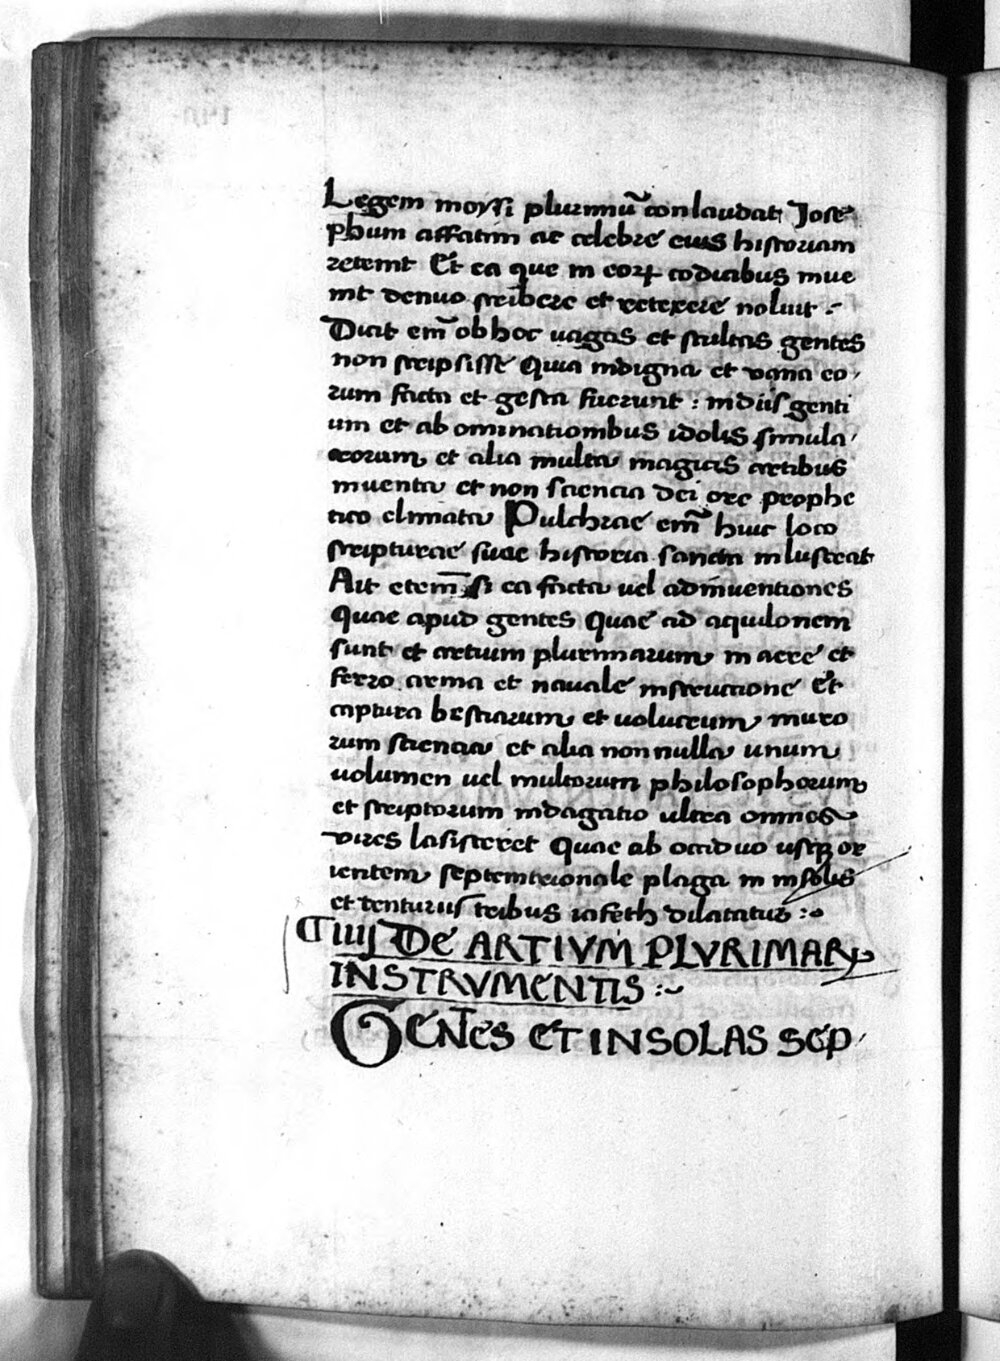 Legem moysi plurimū conlaudat Jose
phum affatim ac celebre eius historiam
retemt Et ea que in eoꝝ codicibus inue
nit denuo scribere et retexere noluit :-
Dicit em̄ ob hoc uagas et stultas gentes
non scripsisse Quia indigna et vana eo,
rum facta et gesta fuerunt : indiis genti
um et ab ominationibus idolis simula,
crorum et alia multa magicis artibus
inuenta et non sciencia dei ore prophe
tico elimata Pulchrae em̄ huic loco
scripturae suae historia sancta inlustrat
Ait etem̄ si ea facta uel adinuentiones
Quae apud gentes Quae ad aquilonem
sunt et artium plurimarum in aere et
ferro arma et nauale instructione Et
captura bestiarum et uolucrum muro
rum sciencia et alia non nulla unum
uolumen uel multorum philosophorum
et scriptorum indagatio ultra omnes
vires lasisteret Quae ab occiduo usqꝫ or
ientem septemtrionale plaga in insolis
et tenturiis tribus iafeth dilatatus :~
¶iiij DE ARTIVM PLVRIMARꝜ
INSTRVMENTIS :~
GENTES ET INSOLAS SEP,